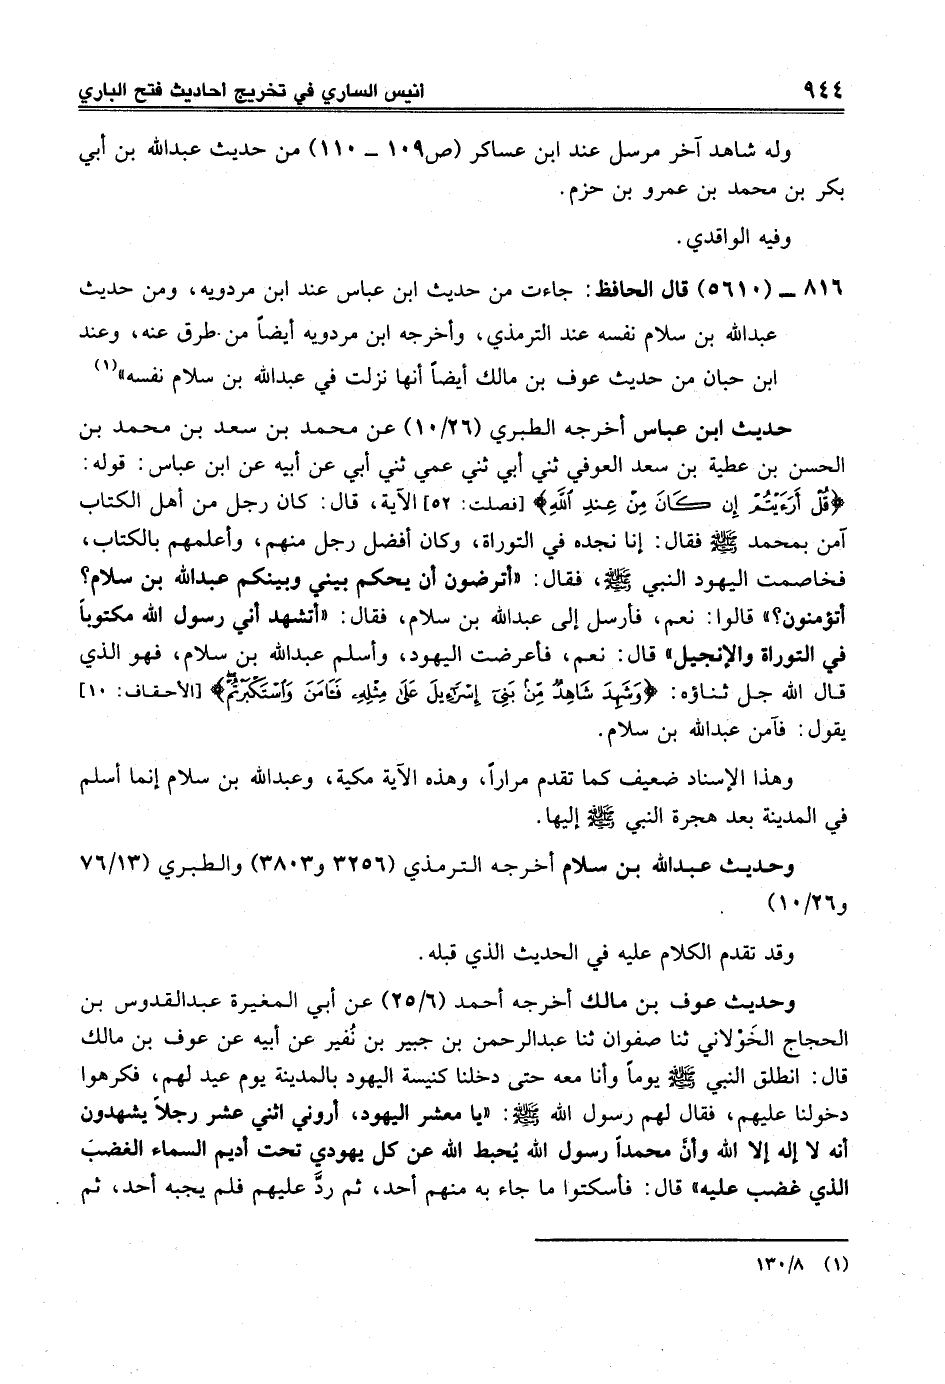 ٩٤٤ أنيس الساري في تخريج أحاديث فتح الباري
وله شاهد آخر مرسل عند ابن عساكر (ص١٠٩ ـ ١١٠) من حديث عبدالله بن أبي
بكر بن محمد بن عمرو بن حزم.
وفيه الواقدي.
٨١٦ ـ (٥٦١٠) قال الحافظ: جاءت من حديث ابن عباس عند ابن مردويه، ومن حديث
عبدالله بن سلام نفسه عند الترمذي، وأخرجه ابن مردويه أيضاً من طرق عنه، وعند
ابن حبان من حديث عوف بن مالك أيضاً أنها نزلت في عبدالله بن سلام نفسه»(١)
حديث ابن عباس أخرجه الطبري (١٠/٢٦) عن محمد بن سعد بن محمد بن
الحسن بن عطية بن سعد العوفي ثني أبي ثني عمي ثني أبي عن أبيه عن ابن عباس: قوله:
﴿قُلْ أَرَءَيْتُمْ إِن كَانَ مِنْ عِندِ ٱللَّهِ﴾ [فصلت: ٥٢] الآية، قال: كان رجل من أهل الكتاب
آمن بمحمد ﷺ فقال: إنا نجده في التوراة، وكان أفضل رجل منهم، وأعلمهم بالكتاب،
فخاصمت اليهود النبي ﷺ، فقال: «أترضون أن يحكم بيني وبينكم عبدالله بن سلام؟
أتؤمنون؟» قالوا: نعم، فأرسل إلى عبدالله بن سلام، فقال: «أتشهد أني رسول الله مكتوباً
في التوراة والإنجيل» قال: نعم، فأعرضت اليهود، وأسلم عبدالله بن سلام، فهو الذي
قال الله جل ثناؤه: ﴿وَشَهِدَ شَاهِدٌ مِّنْ بَنِىٓ إِسْرَٰٓءِيلَ عَلَىٰ مِثْلِهِۦ فَـَٔامَنَ وَٱسْتَكْبَرْتُمْ﴾ [الأحقاف: ١٠]
يقول: فآمن عبدالله بن سلام.
وهذا الإسناد ضعيف كما تقدم مراراً، وهذه الآية مكية، وعبدالله بن سلام إنما أسلم
في المدينة بعد هجرة النبي ﷺ إليها.
وحديث عبدالله بن سلام أخرجه الترمذي (٣٢٥٦ و٣٨٠٣) والطبري (٧٦/١٣
و١٠/٢٦)
وقد تقدم الكلام عليه في الحديث الذي قبله.
وحديث عوف بن مالك أخرجه أحمد (٢٥/٦) عن أبي المغيرة عبدالقدوس بن
الحجاج الخَوْلاني ثنا صفوان ثنا عبدالرحمن بن جبير بن نُفير عن أبيه عن عوف بن مالك
قال: انطلق النبي ﷺ يوماً وأنا معه حتى دخلنا كنيسة اليهود بالمدينة يوم عيد لهم، فكرهوا
دخولنا عليهم، فقال لهم رسول الله ﷺ: «يا معشر اليهود، أروني اثني عشر رجلاً يشهدون
أنه لا إله إلا الله وأنَّ محمداً رسول الله يُحبط الله عن كل يهودي تحت أديم السماء الغضبَ
الذي غضب عليه» قال: فأسكتوا ما جاء به منهم أحد، ثم ردَّ عليهم فلم يجبه أحد، ثم
(١) ١٣٠/٨